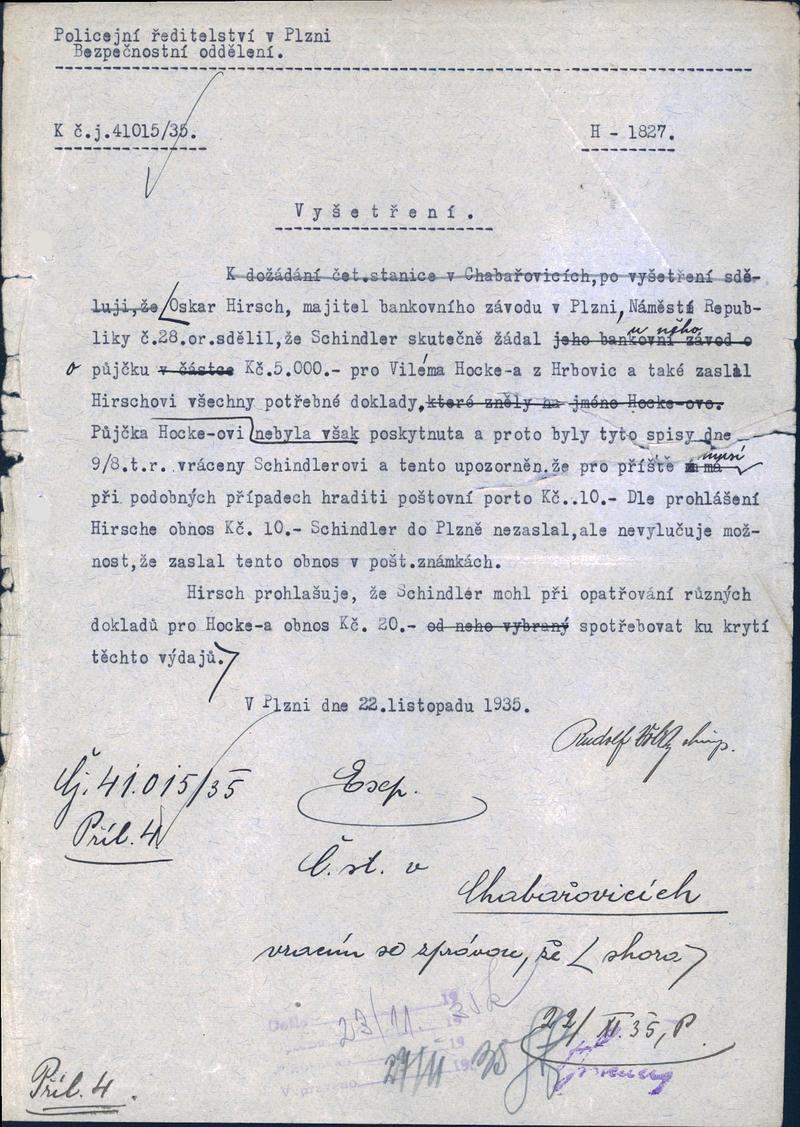 Policejní ředitelství v Plzni
Bezpečnostní oddělení.
K č.j.41015/35.
H - 1827.
Vyšetření.
K dožádání čet.stanice v Chabařovicích,po vyšetření sdě-
luji,že Oskar Hirsch, majitel bankovního závodu v Plzni, Náměstí Repub-
u něho
liky č.28.or.sdělil,že Schindler skutečně žádal jeho bankovní závod o
o půjčku v částce Kč.5.000.- pro Viléma Hocke-a z Hrbovic a také zaslal
Hirschovi všechny potřebné doklady,které zněly na jméno Hocke-ovo.
Půjčka Hocke-ovi nebyla však poskytnuta a proto byly tyto spisy dne
musí
9/8.t.r. vráceny Schindlerovi a tento upozorněn.že pro příště má
při podobných případech hraditi poštovní porto Kč..10.- Dle prohlášení
Hirsche obnos Kč. 10.- Schindler do Plzně nezaslal,ale nevylučuje mož-
nost,že zaslal tento obnos v pošt.známkách.
Hirsch prohlašuje, že Schindler mohl při opatřování různých
dokladů pro Hocke-a obnos Kč. 20.- od neho vybraný spotřebovat ku krytí
těchto výdajů.
V Plzni dne 22.listopadu 1935.
Rudolf
Čj. 41.015/35
Příl. 4
Exp.
Č. st. v
Chabařovicích
vracím se zprávou, že (shora)
22/XI.35, P.
Došlo 19
23/11. 19
27/11 1935
Příl. 4.